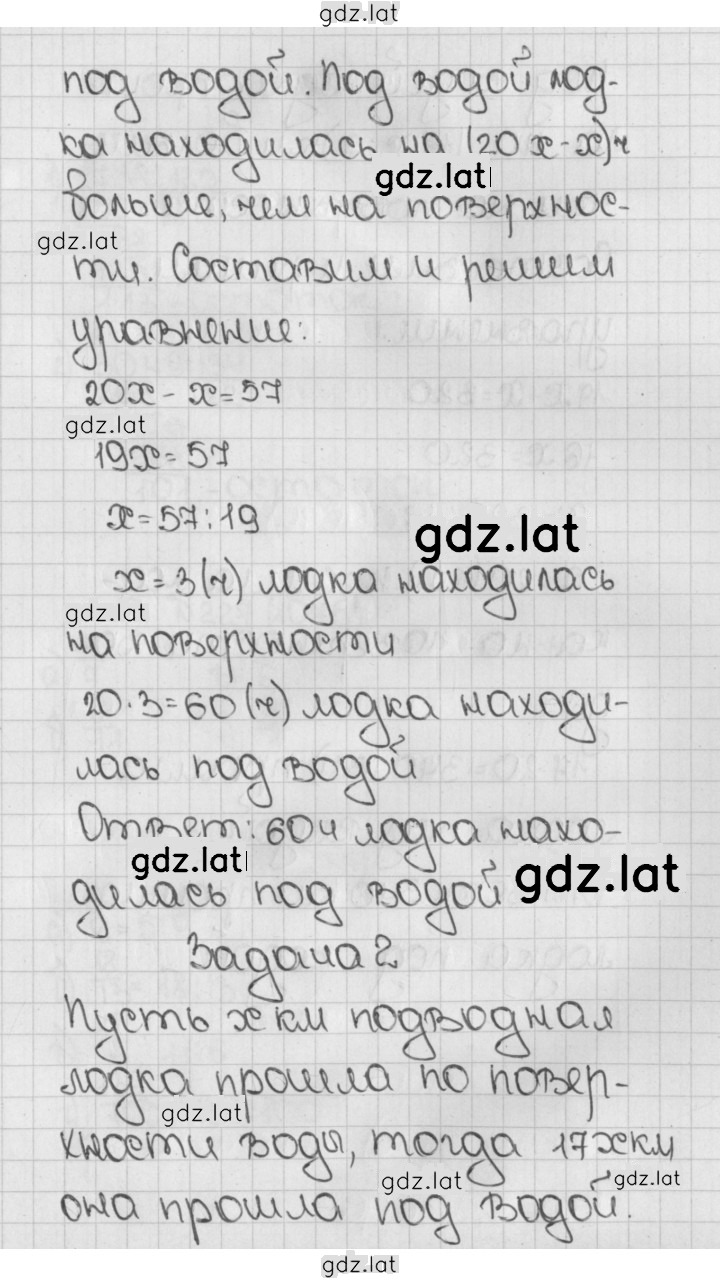 gdz.lat
под водой. Под водой лод-
ка находилась на (20x-x)ч
gdz.lat
больше, чем на поверхнос-
gdz.lat
ти. Составим и решим
уравнение:
20x - x = 57
gdz.lat
19x = 57
x = 57 : 19
gdz.lat
x = 3 (ч) лодка находилась
gdz.lat
на поверхности
20 · 3 = 60 (ч) лодка находи-
лась под водой
Ответ: 60 ч лодка нахо-
gdz.lat
дилась под водой
gdz.lat
Задача 2
Пусть x км подводная
лодка прошла по повер-
gdz.lat
хности воды, тогда 17x км
gdz.lat
gdz.lat
она прошла под водой.
gdz.lat